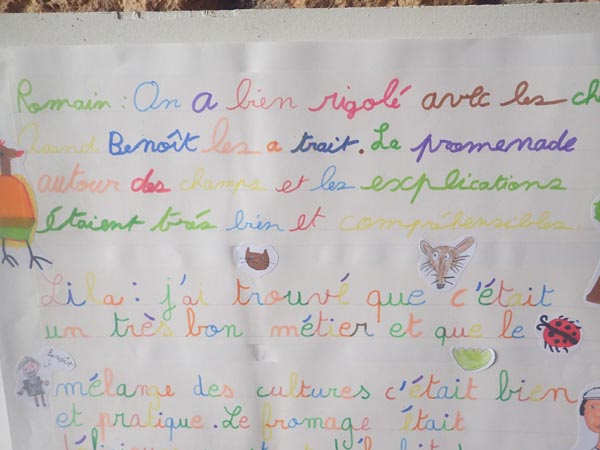 Romain : On a bien rigolé avec les ch
Quand Benoît les a trait. La promenade
autour des champs et les explications
étaient très bien et compréhensibles.
Lila : j'ai trouvé que c'était
un très bon métier et que le
Benoît
mélange des cultures c'était bien
et pratique. Le fromage était